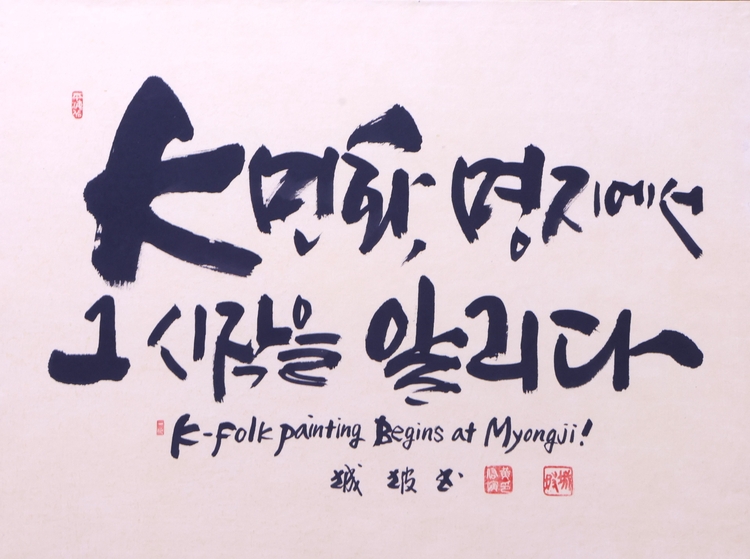 K민화, 명지에서
그 시작을 알리다
K-Folk painting Begins at Myongji!